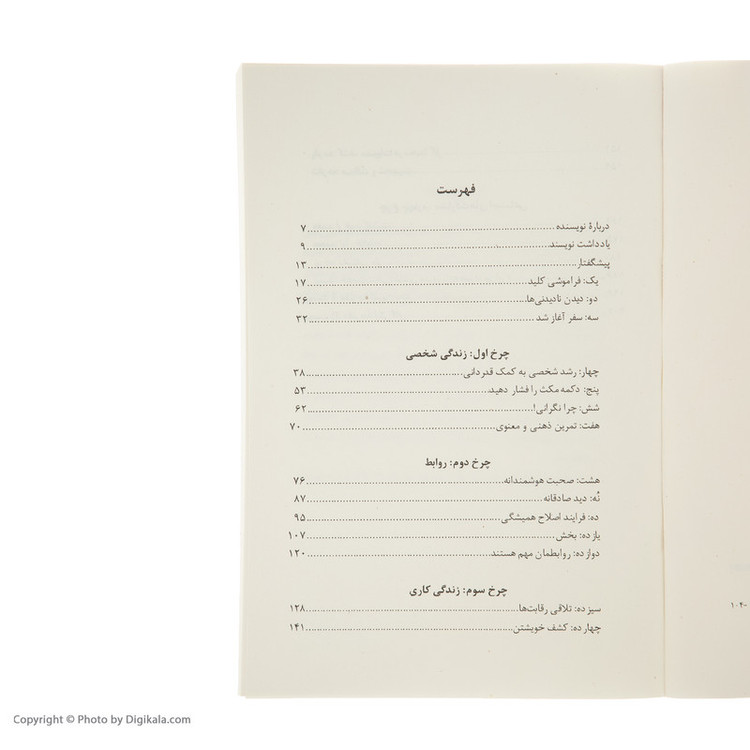 فهرست
دربارهٔ نویسنده ........ ۷
یادداشت نویسند ........ ۹
پیشگفتار ........ ۱۳
یک: فراموشی کلید ........ ۱۷
دو: دیدن نادیدنی‌ها ........ ۲۶
سه: سفر آغاز شد ........ ۳۲
چرخ اول: زندگی شخصی
چهار: رشد شخصی به کمک قدردانی ........ ۳۸
پنج: دکمه مکث را فشار دهید ........ ۵۳
شش: چرا نگرانی! ........ ۶۲
هفت: تمرین ذهنی و معنوی ........ ۷۰
چرخ دوم: روابط
هشت: صحبت هوشمندانه ........ ۷۶
نُه: دید صادقانه ........ ۸۷
ده: فرایند اصلاح همیشگی ........ ۹۵
یازده: بخش ........ ۱۰۷
دوازده: روابطمان مهم هستند ........ ۱۲۰
چرخ سوم: زندگی کاری
سیزده: تلافی رقابت‌ها ........ ۱۲۸
چهارده: کشف خویشتن ........ ۱۴۱
۱۰۴-
Copyright © Photo by Digikala.com